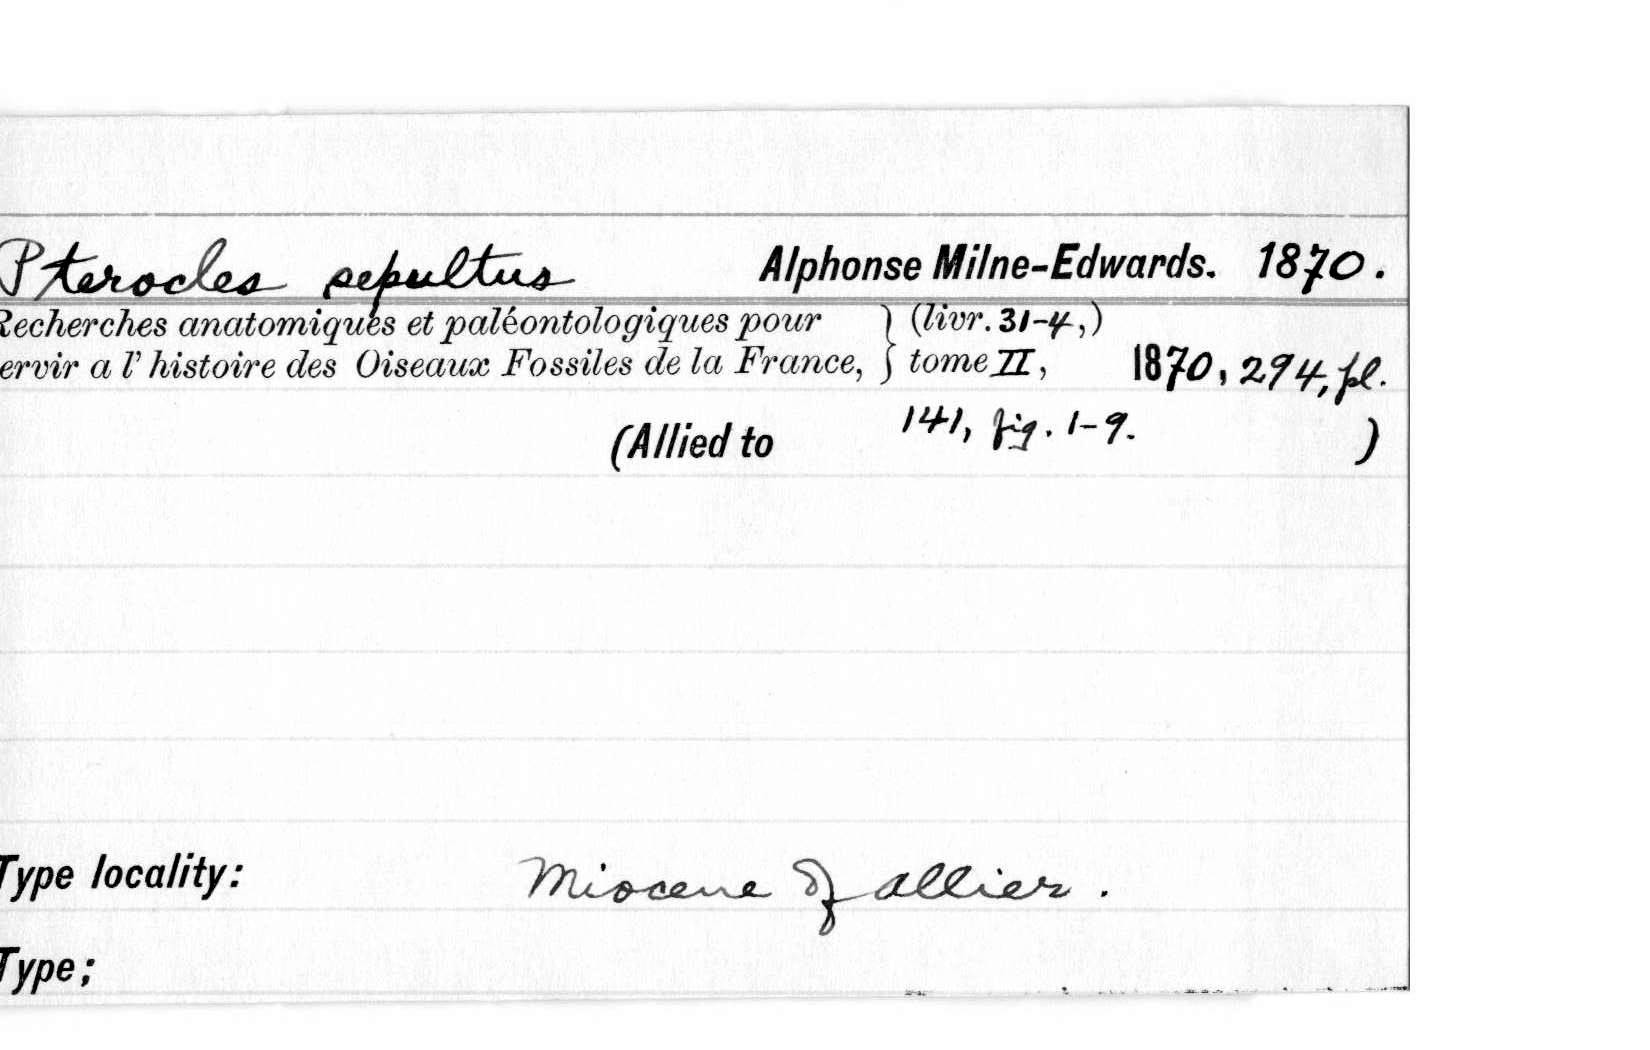 Pterocles sepultus Alphonse Milne-Edwards. 1870.
Recherches anatomiques et paléontologiques pour } (livr. 31-4,)
ervir a l' histoire des Oiseaux Fossiles de la France, } tome II, 1870, 294, pl.
(Allied to 141, fig. 1-9. )
Type locality: Miocene of Allier.
Type;